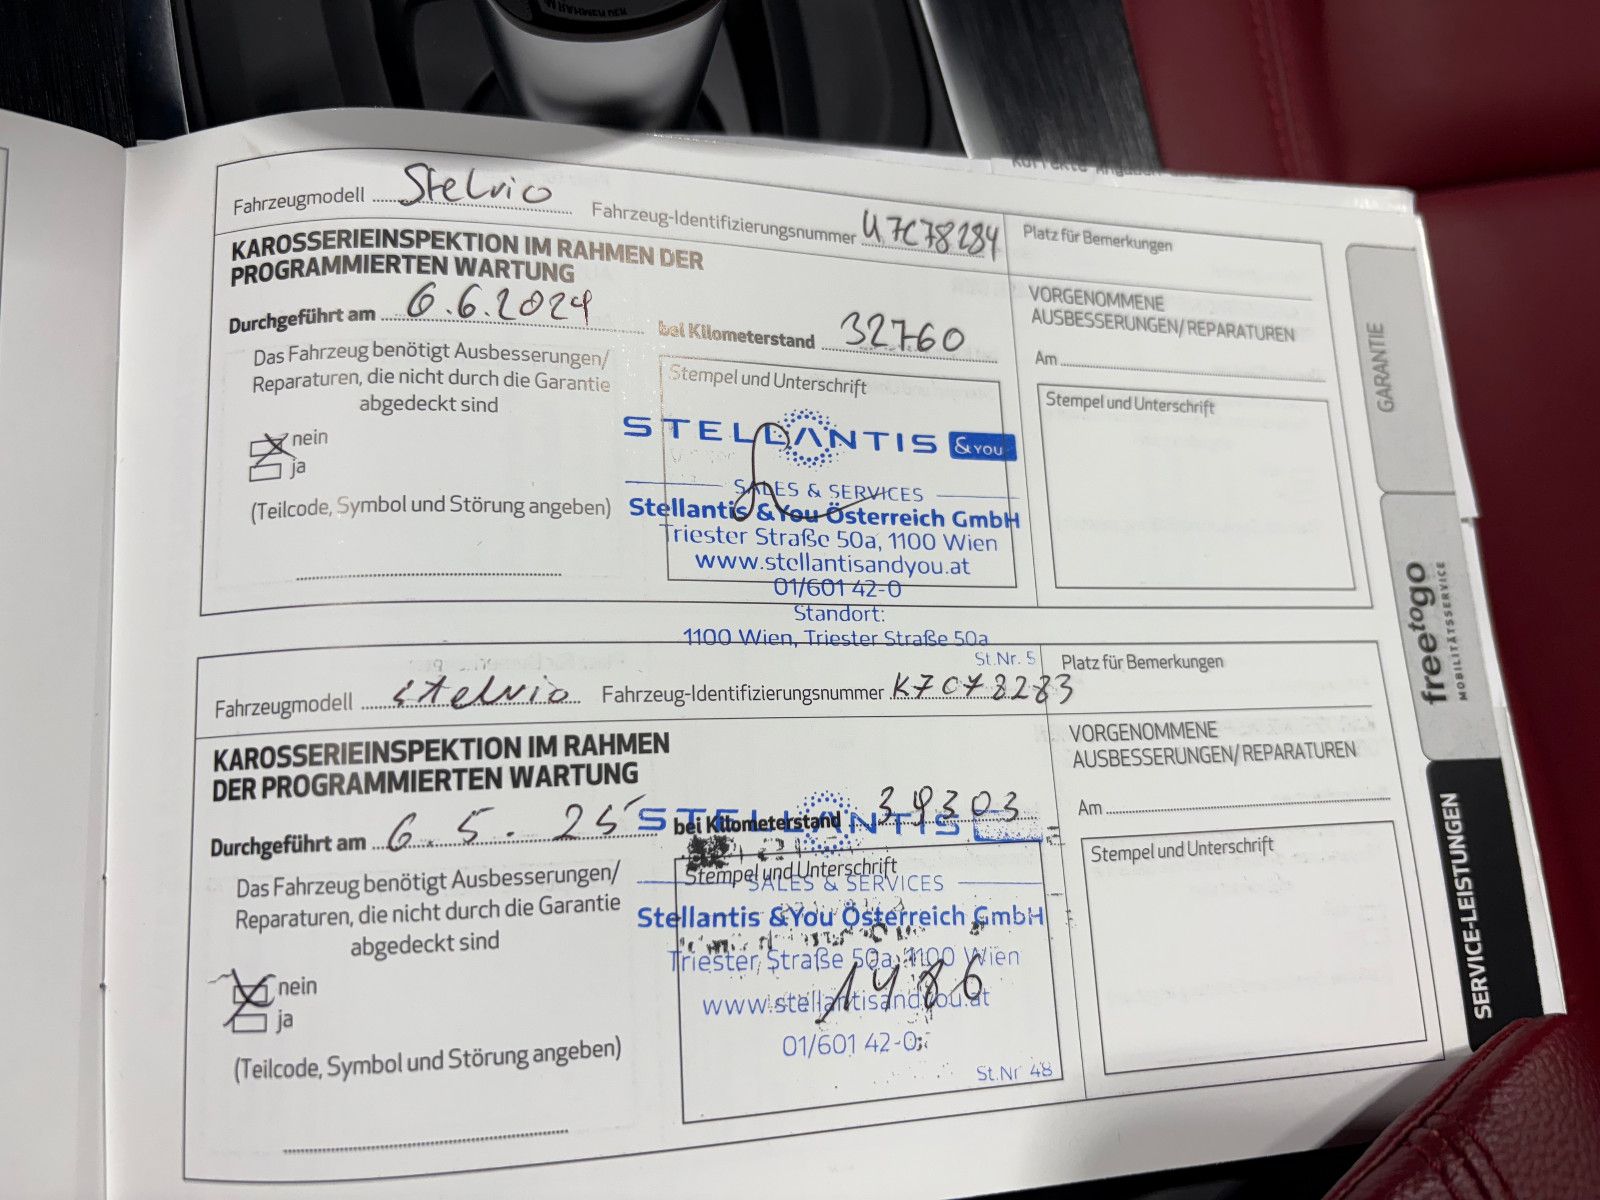 Fahrzeugmodell Stelvio Fahrzeug-Identifizierungsnummer U7C78284
KAROSSERIEINSPEKTION IM RAHMEN DER
PROGRAMMIERTEN WARTUNG
Durchgeführt am 6.6.2024 bei Kilometerstand 32760
Das Fahrzeug benötigt Ausbesserungen/
Reparaturen, die nicht durch die Garantie
abgedeckt sind
nein
ja
(Teilcode, Symbol und Störung angeben)
Stempel und Unterschrift
STELLANTIS &YOU
SALES & SERVICES
Stellantis &You Österreich GmbH
Triester Straße 50a, 1100 Wien
www.stellantisandyou.at
01/601 42-0
Standort:
1100 Wien, Triester Straße 50a
St.Nr. 5
Platz für Bemerkungen
VORGENOMMENE
AUSBESSERUNGEN/REPARATUREN
Am
Stempel und Unterschrift
Fahrzeugmodell Stelvio Fahrzeug-Identifizierungsnummer K7C78283
KAROSSERIEINSPEKTION IM RAHMEN
DER PROGRAMMIERTEN WARTUNG
Durchgeführt am 6.5.25 bei Kilometerstand 39303
Das Fahrzeug benötigt Ausbesserungen/
Reparaturen, die nicht durch die Garantie
abgedeckt sind
nein
ja
(Teilcode, Symbol und Störung angeben)
STELLANTIS
Stempel und Unterschrift
SALES & SERVICES
Stellantis &You Österreich GmbH
Triester Straße 50a, 1100 Wien
www.stellantisandyou.at
1486
01/601 42-0
St.Nr 48
Platz für Bemerkungen
VORGENOMMENE
AUSBESSERUNGEN/REPARATUREN
Am
Stempel und Unterschrift
GARANTIE
freetogo
MOBILITÄTSSERVICE
SERVICE-LEISTUNGEN